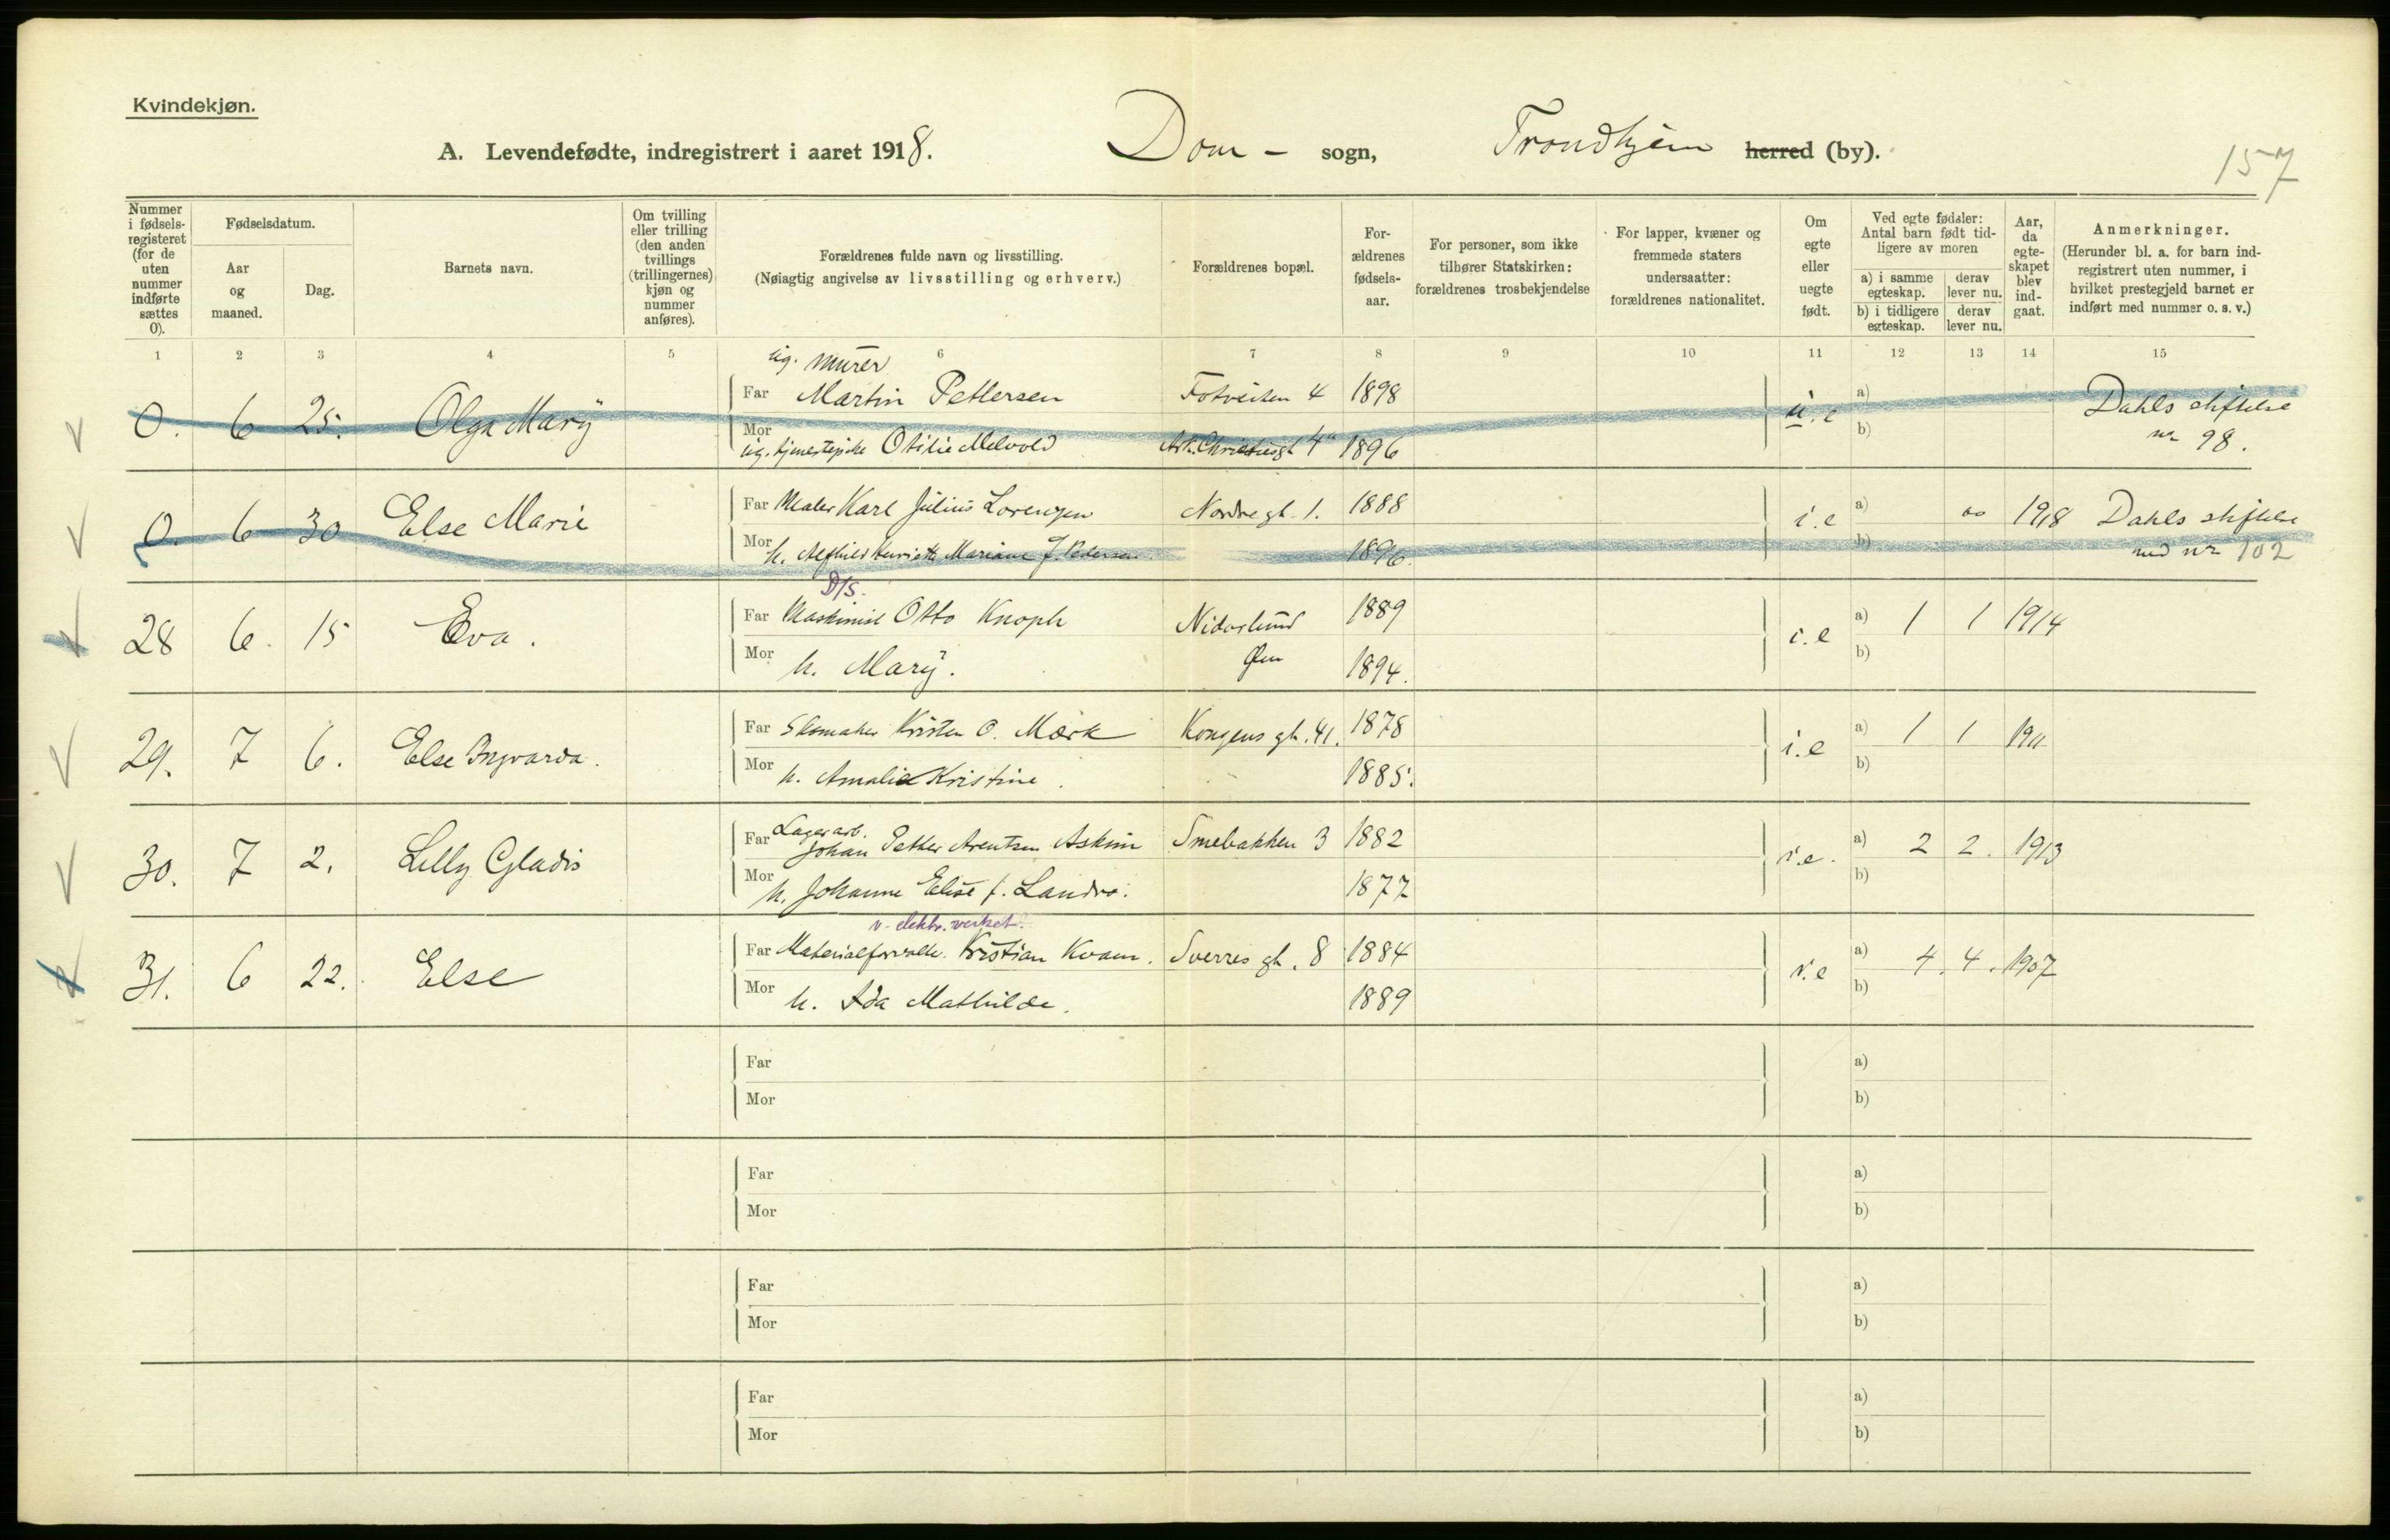 Kvindekjøn.
A. Levendefødte, indregistrert i aaret 1918. Dom - sogn, Trondhjem herred (by).
157
Nummer i fødsels-registeret (for de uten nummer indførte sættes 0).
Fødselsdatum.
Aar og maaned.
Dag.
Barnets navn.
Om tvilling eller trilling (den anden tvillings (trillingernes) kjøn og nummer anføres).
Forældrenes fulde navn og livsstilling.
(Nøiagtig angivelse av livsstilling og erhverv.)
Forældrenes bopæl.
For-ældrenes fødsels-aar.
For personer, som ikke tilhører Statskirken: forældrenes trosbekjendelse
For lapper, kvæner og fremmede staters undersaatter: forældrenes nationalitet.
Om egte eller uegte født.
Ved egte fødsler: Antal barn født tid-ligere av moren
a) i samme egteskap. derav lever nu.
b) i tidligere egteskap. derav lever nu.
Aar, da egte-skapet blev ind-gaat.
Anmerkninger.
(Herunder bl. a. for barn ind-registrert uten nummer, i hvilket prestegjeld barnet er indført med nummer o. s. v.)
1 2 3 4 5 6 7 8 9 10 11 12 13 14 15
ug. murer
0. 6 25. Olga Mary Far Martin Pettersen 4 1898 u.e a) Dahls stiftelse
Mor ug. tjenestepike Otilie Melvold Ark. Christiesgt 4 1896 b) nr 98.
0. 6 30 Else Marie Far Maler Karl Julius Lorenzen Nordre gt. 1. 1888 i.e a) 1918 Dahls stiftelse
Mor h. Alfhild Henriette Mariane f. Pedersen 1896. b) med nr 102
D/S.
28 6. 15 Eva. Far Maskinist Otto Knoph 1889 i.e a) 1 1 1914
Mor h. Mary. 1894. b)
29. 7 6. Else Ingvarda. Far Skomaker Kristen O. Mørk Kongens gt. 41. 1878 i.e a) 1 1 1911
Mor h. Amalie Kristine. 1885. b)
30. 7 2. Lilly Gladis Far Lagerarb. Johan Petter Arentsen Askim Smebakken 3 1882 i.e. a) 2 2. 1913
Mor h. Johanne Elise f. Landrø. 1877 b)
v. elektr. verket.
31. 6 22. Else Far Materialforvalt. Kristian Kvam. Sverres gt. 8 1884 i.e a) 4. 4. 1907
Mor h. Ida Mathilde. 1889 b)
Far a)
Mor b)
Far a)
Mor b)
Far a)
Mor b)
Far a)
Mor b)